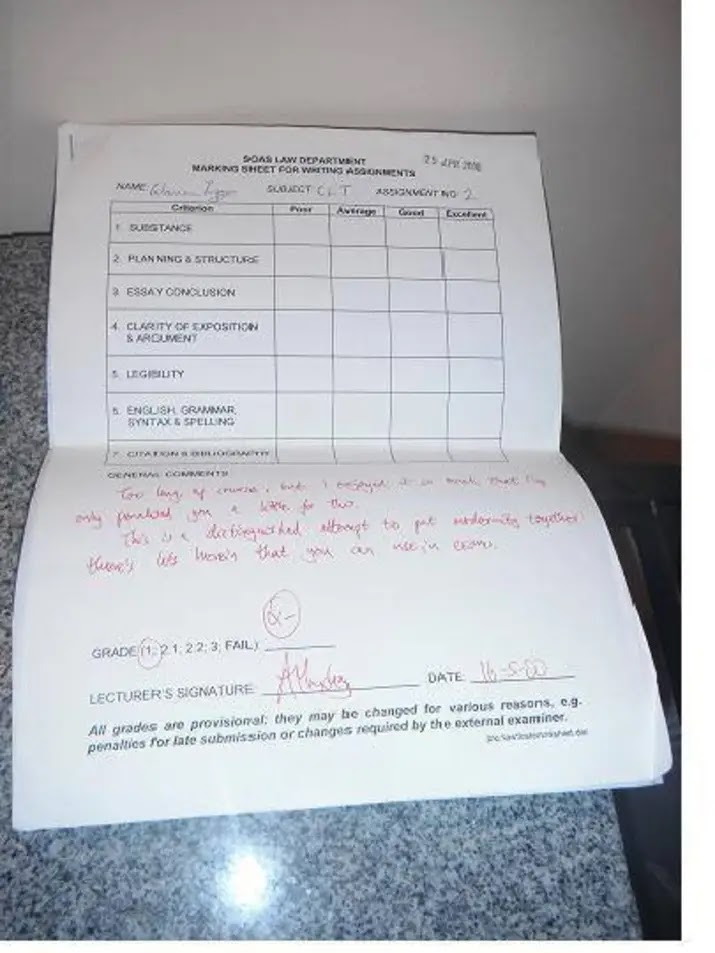 SOAS LAW DEPARTMENT
25 APR 2000
MARKING SHEET FOR WRITING ASSIGNMENTS
NAME: SUBJECT CLT ASSIGNMENT NO: 2
Criterion Poor Average Good Excellent
1. SUBSTANCE
2. PLANNING & STRUCTURE
3. ESSAY CONCLUSION
4. CLARITY OF EXPOSITION
& ARGUMENT
5. LEGIBILITY
6. ENGLISH, GRAMMAR,
SYNTAX & SPELLING
7. CITATION & BIBLIOGRAPHY
GENERAL COMMENTS
Too long of course, but I enjoyed it so much that I'm
only penalized you a little for this.
This is a distinguished attempt to put modernity together:
there's lots herein that you can use in exam.
GRADE (1; 2.1; 2.2; 3; FAIL):
α-
LECTURER'S SIGNATURE: DATE: 16-5-00
All grades are provisional: they may be changed for various reasons, e.g.
penalties for late submission or changes required by the external examiner.